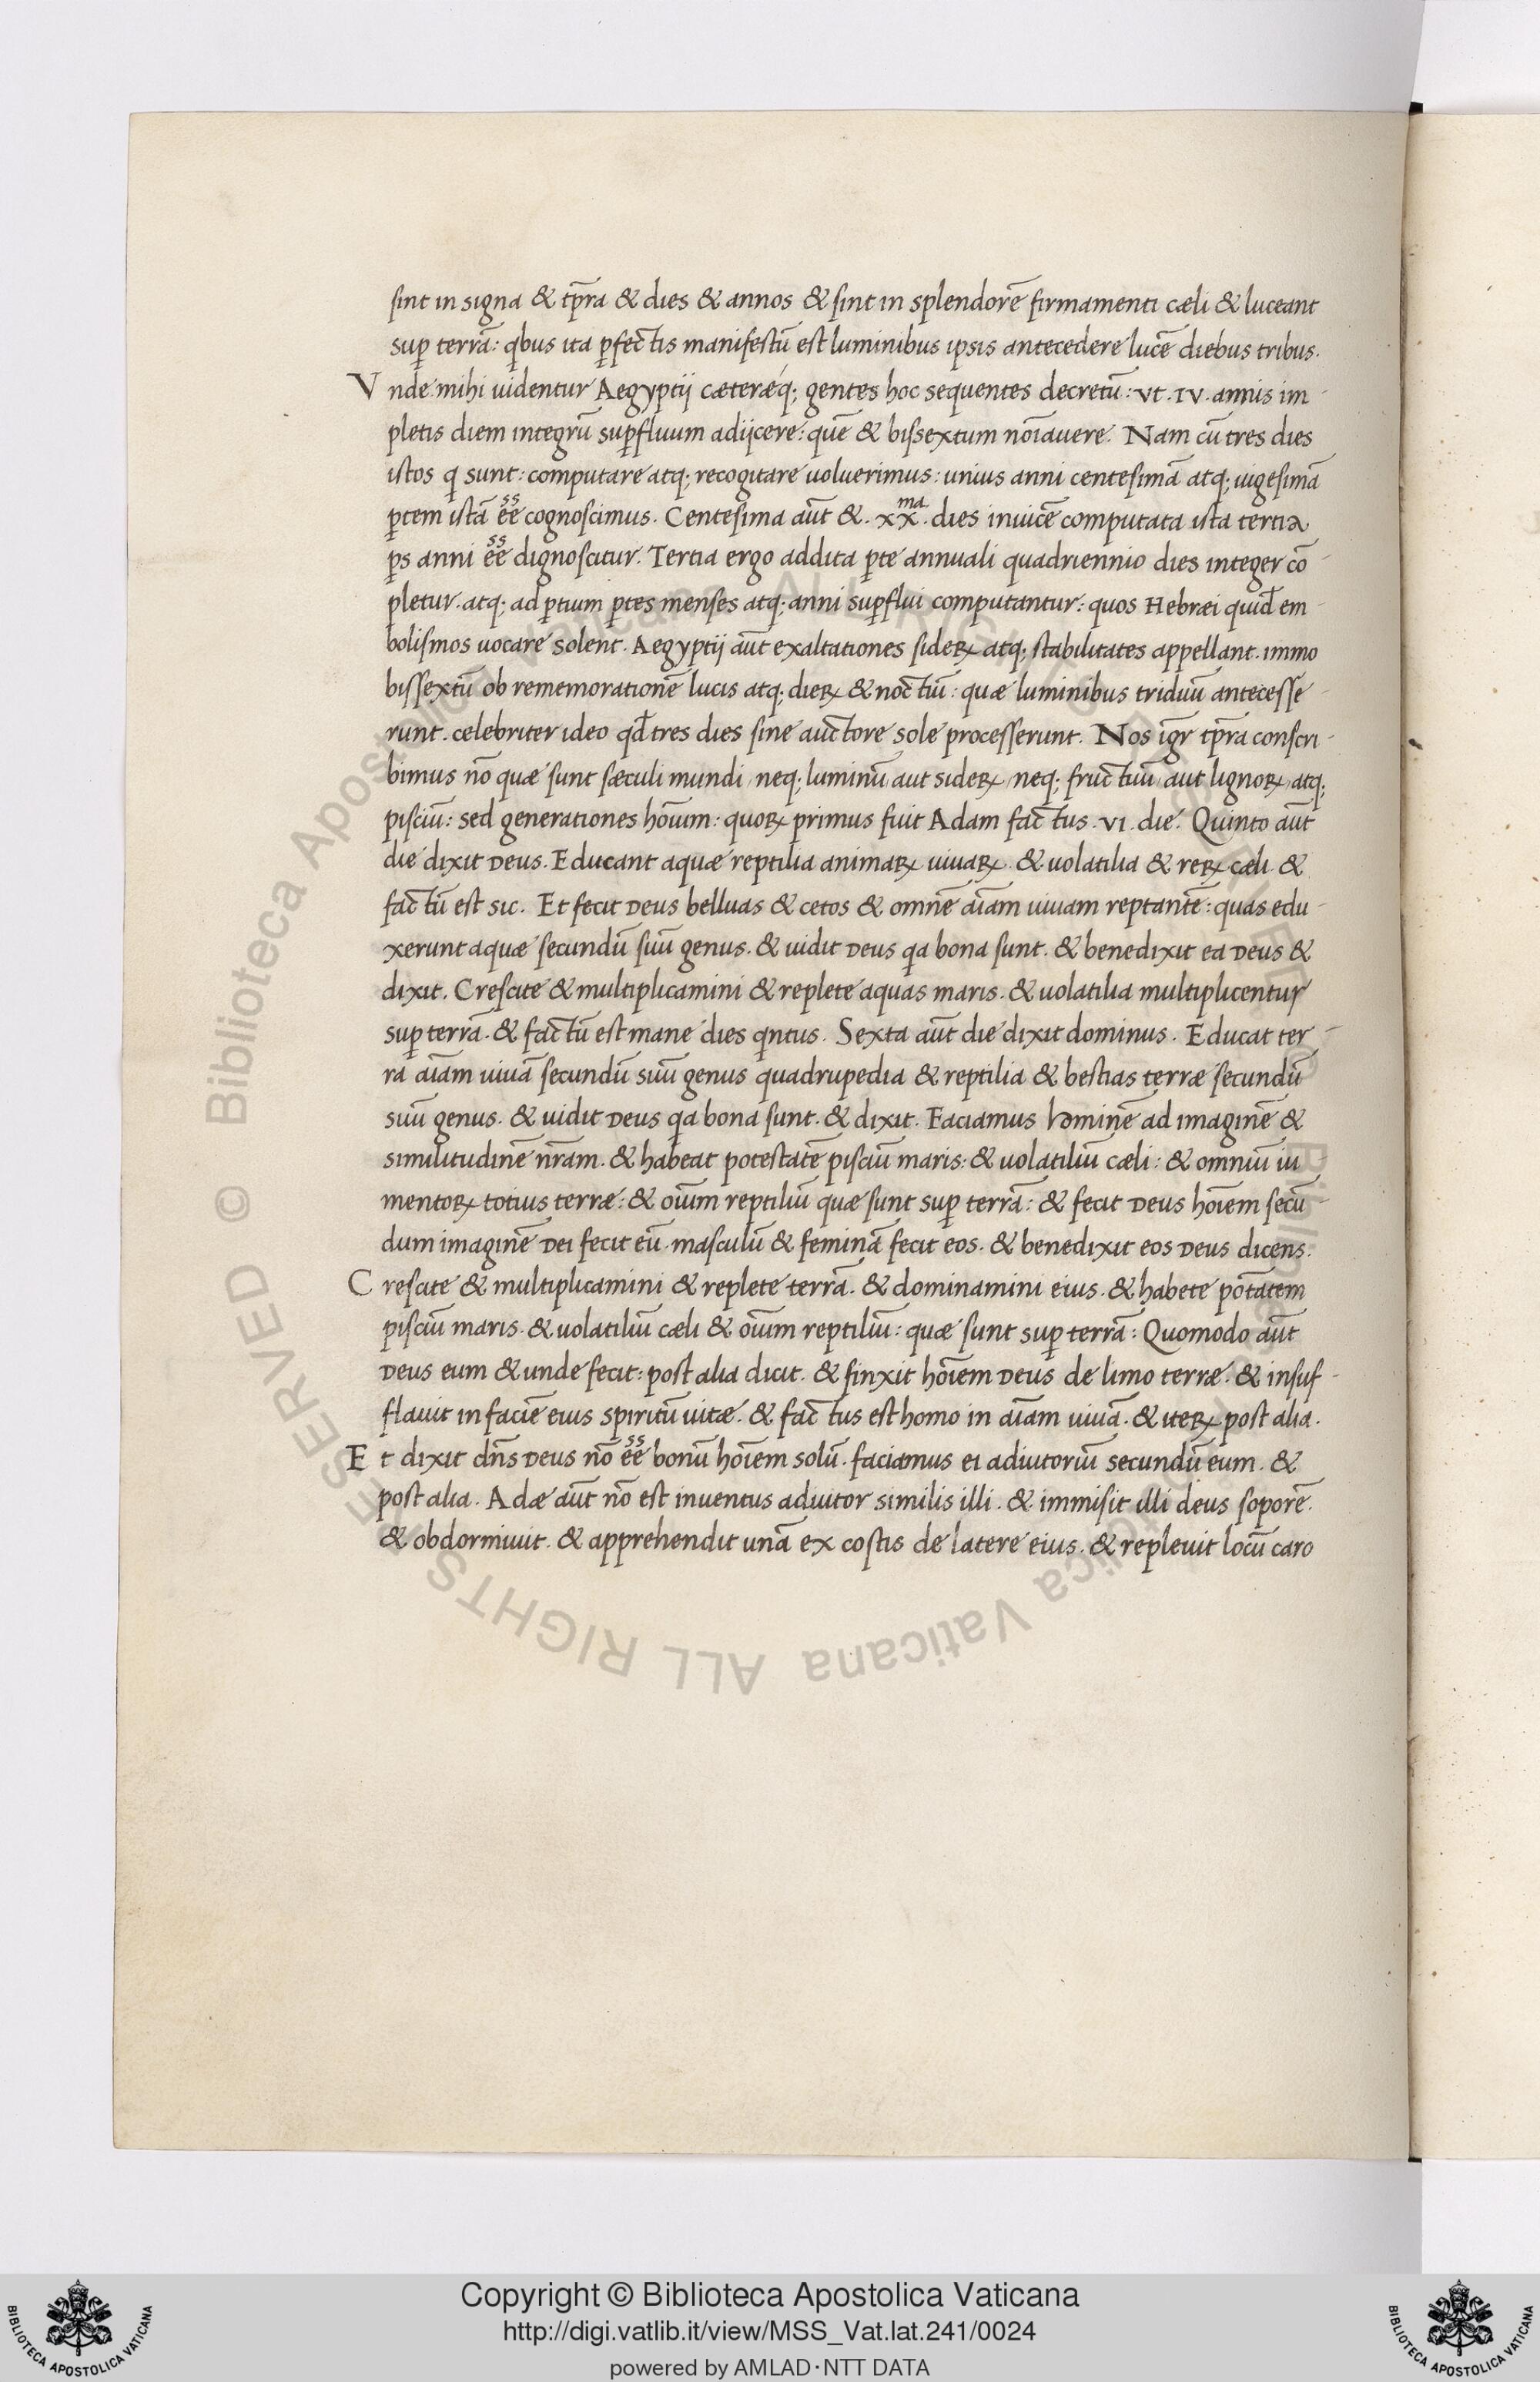 sint in signa & tp̄ra & dies & annos & sint in splendorē firmamenti cæli & luceant
suꝑ terrā: qbus ita ꝑfectis manifestū est luminibus ipsis antecedere lucē diebus tribus.
Vnde mihi uidentur Aegyptij cæteræq; gentes hoc sequentes decretū: vt .IV. annis im-
pletis diem integrū suꝑfluum adijcere: quē & bissextum noīauere. Nam cū tres dies
istos q sunt: computare atq; recogitare uoluerimus: unius anni centesimā atq; uigesimā
ꝑtem istā eē̄ cognoscimus. Centesima aūt &. xx.ma dies inuicē computata ista tertia
ꝑs anni eē̄ dignoscitur. Tertia ergo addita ꝑte annuali quadriennio dies integer cō-
pletur. atq; ad ꝑtium ꝑtes menses atq; anni suꝑflui computantur: quos Hebræi quid̄ em-
bolismos uocare solent. Aegyptij aūt exaltationes sideꝝ atq; stabilitates appellant. immo
bissextū ob rememorationē lucis atq; dieꝝ & noctiū: quæ luminibus triduū antecesse-
runt. celebriter ideo qd̄ tres dies sine auctore sole processerunt. Nos igr̄ tp̄ra conscri-
bimus nō quæ sunt sæculi mundi, neq; luminū aut sideꝝ, neq; fructuū aut lignoꝝ, atq;
pisciū: sed generationes hōium: quoꝝ primus fuit Adam factus .VI. die. Quinto aūt
die dixit Deus. Educant aquæ reptilia animaꝝ uiuaꝝ & uolatilia & reꝝ cæli. &
factū est sic. Et fecit Deus belluas & cetos & omnē aīam uiuam reptantē: quas edu-
xerunt aquæ secundū suū genus. & uidit Deus qa bona sunt. & benedixit ea Deus &
dixit. Crescite & multiplicamini & replete aquas maris. & uolatilia multiplicentur
suꝑ terrā. & factū est mane dies qntus. Sexta aūt die dixit dominus. Educat ter-
ra aīam uiuā secundū suū genus quadrupedia & reptilia & bestias terræ secundū
suū genus. & uidit Deus qa bona sunt. & dixit. Faciamus hominē ad imaginē &
similitudinē nr̄am. & habeat potestatē pisciū maris: & uolatiliū cæli: & omniū iu-
mentoꝝ totius terræ: & oīum reptiliū quæ sunt suꝑ terrā: & fecit Deus hoīem secū-
dum imaginē Dei fecit eū. masculū & feminā fecit eos. & benedixit eos Deus dicens.
Crescite & multiplicamini & replete terrā. & dominamini eius. & habete pōtatem
pisciū maris. & uolatiliū cæli & oīum reptiliū: quæ sunt suꝑ terrā: Quomodo aūt
Deus eum & unde fecit: post alia dicit. & finxit hoīem Deus de limo terræ. & insuf-
flauit in faciē eius spiritū uitæ. & factus est homo in aīam uiuā. & iteꝝ post alia.
Et dixit dn̄s Deus nō eē̄ bonū hoīem solū. faciamus ei adiutoriū secundū eum. &
post alia. Adæ aūt nō est inuentus adiutor similis illi. & immisit illi deus soporē.
& obdormiuit. & apprehendit unā ex costis de latere eius. & repleuit locū caro
© Biblioteca Apostolica Vaticana ALL RIGHTS RESERVED
Copyright © Biblioteca Apostolica Vaticana
http://digi.vatlib.it/view/MSS_Vat.lat.241/0024
powered by AMLAD·NTT DATA
BIBLIOTECA APOSTOLICA VATICANA
BIBLIOTECA APOSTOLICA VATICANA